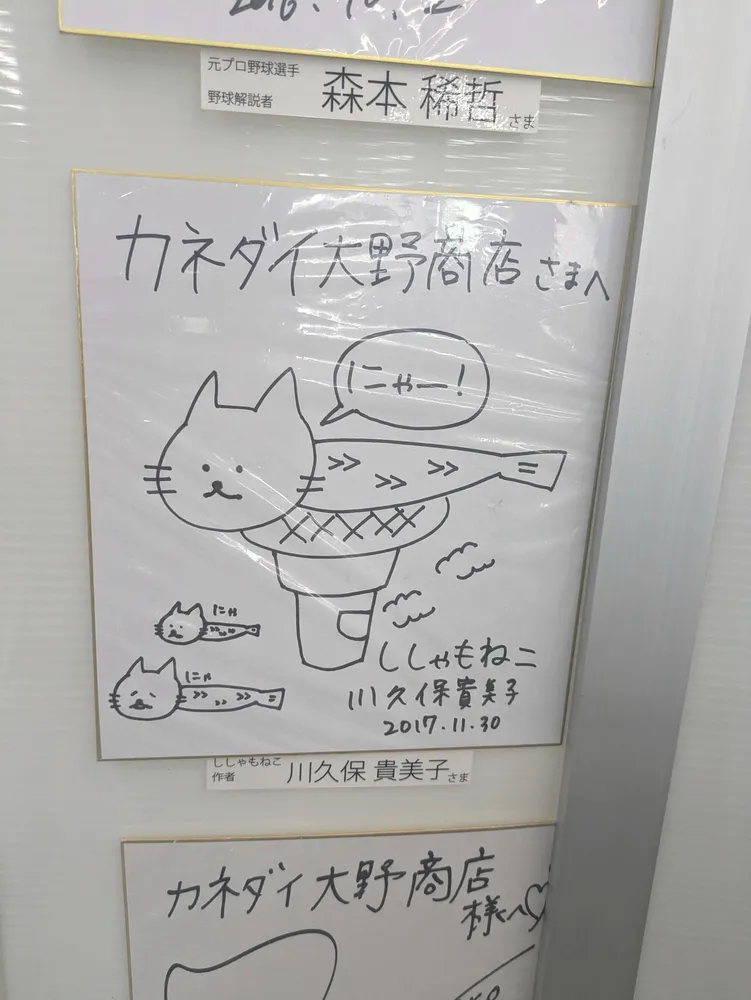 元プロ野球選手
野球解説者
森本 稀哲 さま
カネダイ大野商店さまへ
にゃー!
にゃ
にゃ
ししゃもねこ
川久保貴美子
2017.11.30
ししゃもねこ
作者
川久保 貴美子 さま
カネダイ大野商店
様へ♡